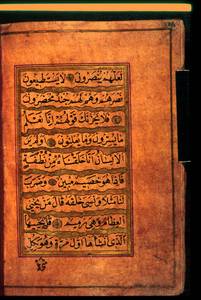 لعلهم ينصرون لا يستطيعون
نصرهم وهم لهم جند محضرون
فلا يحزنك قولهم انا نعلم
ما يسرون وما يعلنون اولم ير
الانسان انا خلقناه من نطفة
فاذا هو خصيم مبين وضرب
لنا مثلا ونسي خلقه قال من يحيي
العظام وهي رميم قل يحييها
الذي انشاها اول مرة وهو بكل